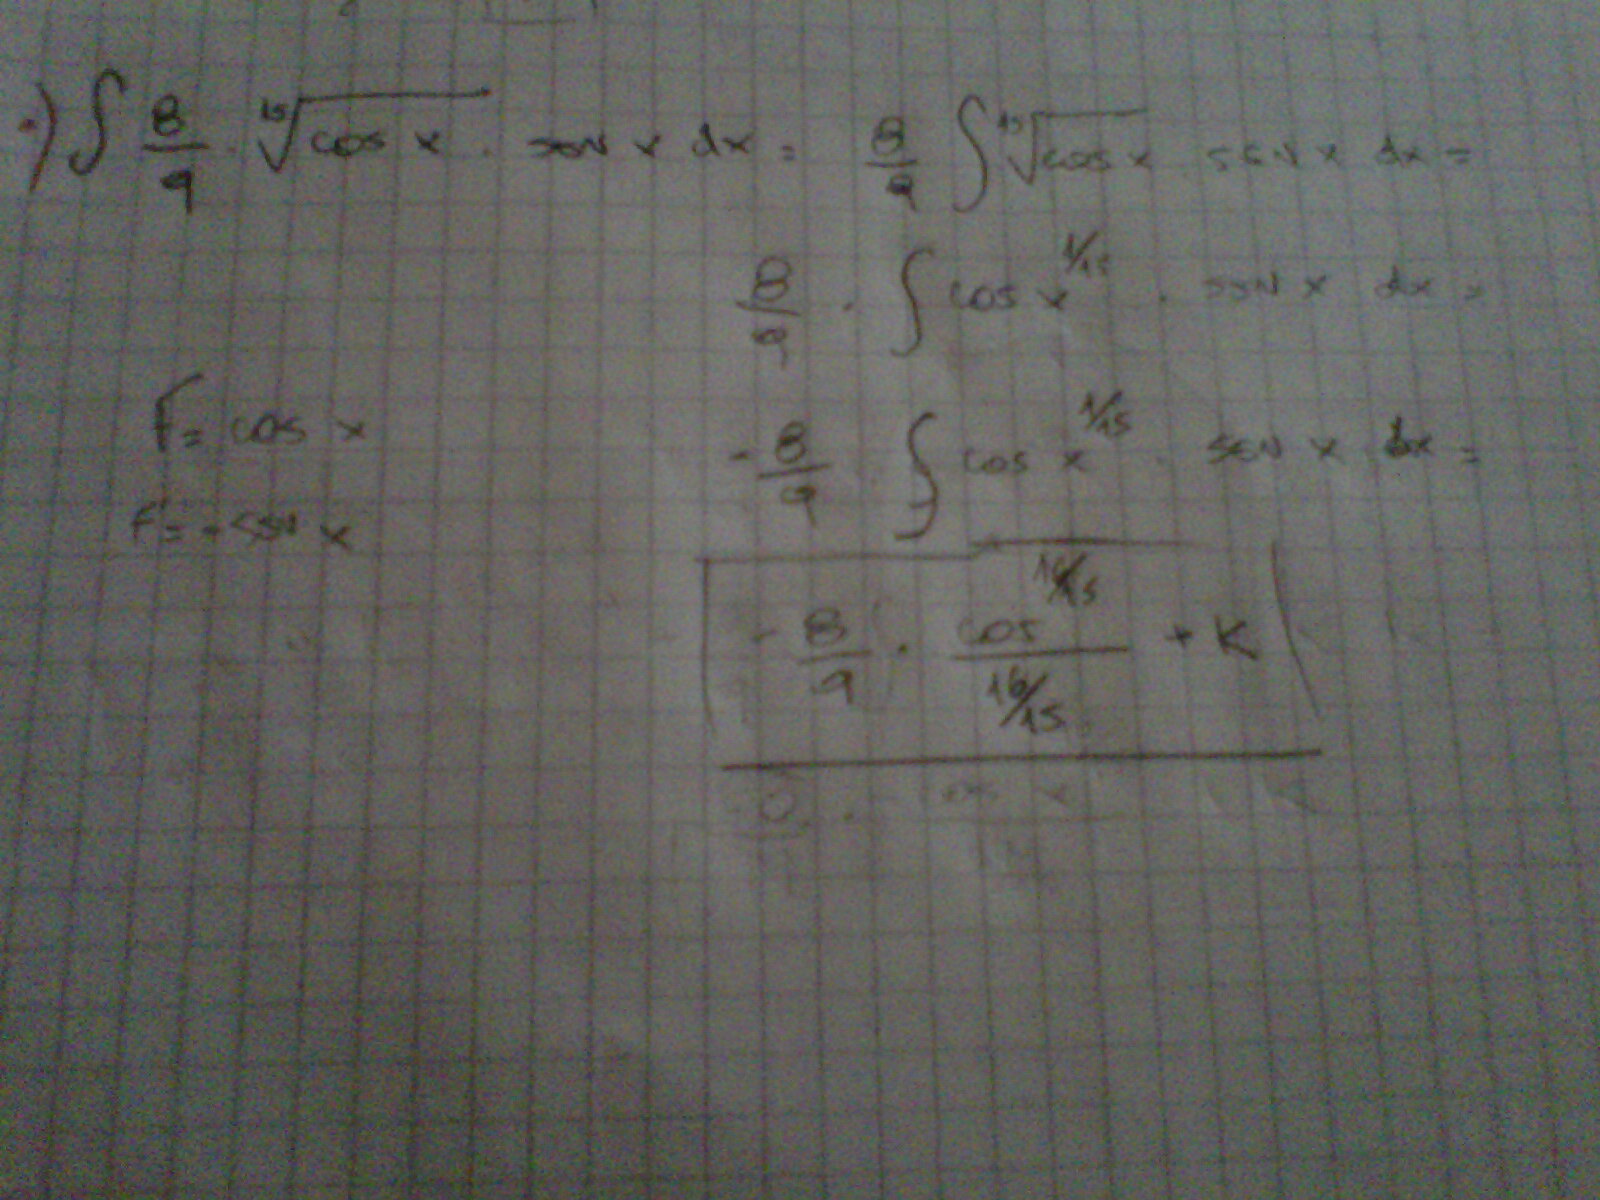 ·) ∫ 8/9 · ¹⁵√cos x · sen x dx = 8/9 ∫ ¹⁵√cos x sen x dx =
8/9 · ∫ cos x^1/15 · sen x dx =
F = cos x
- 8/9 ∫ cos x^1/15 · sen x dx =
F = - sen x
- 8/9 · cos^16/15 / 16/15 + K